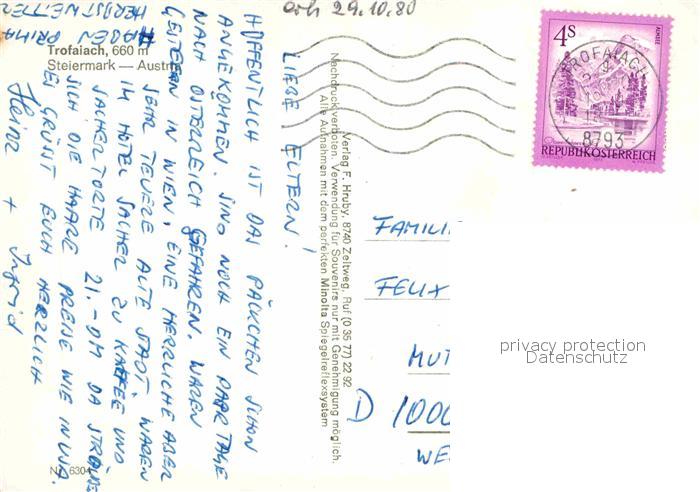 Erh 29.10.80
Trofaiach, 660 m
Steiermark — Austria
LIEBE ELTERN!
HOFFENTLICH IST DAS PÄCKCHEN SCHON
ANGEKOMMEN. SIND NOCH EIN PAAR TAGE
NACH ÖSTERREICH GEFAHREN. WAREN
GESTERN IN WIEN, EINE HERRLICHE ABER
SEHR TEUERE ALTE STADT. WAREN
IM HOTEL SACHER ZU KAFFEE UND
SACHERTORTE 21.-DM DA STRÄUBEN
SICH DIE HAARE PREISE WIE IN USA.
HABEN PRIMA
HERBSTWETTER
ES GRÜSST EUCH HERZLICH
Heinz + Ingrid
Nr. 6304
Verlag F. Hruby, 8740 Zeltweg, Ruf (0 35 77) 22 92
Nachdruck verboten. Verwendung für Souvenirs nur mit Genehmigung möglich.
Alle Aufnahmen mit dem perfekten Minolta Spiegelreflexsystem
4S
ALMSEE
REPUBLIK ÖSTERREICH
TROFAIACH
8793
FAMILI
FELIX
MUT
D 1000
WE
privacy protection
Datenschutz